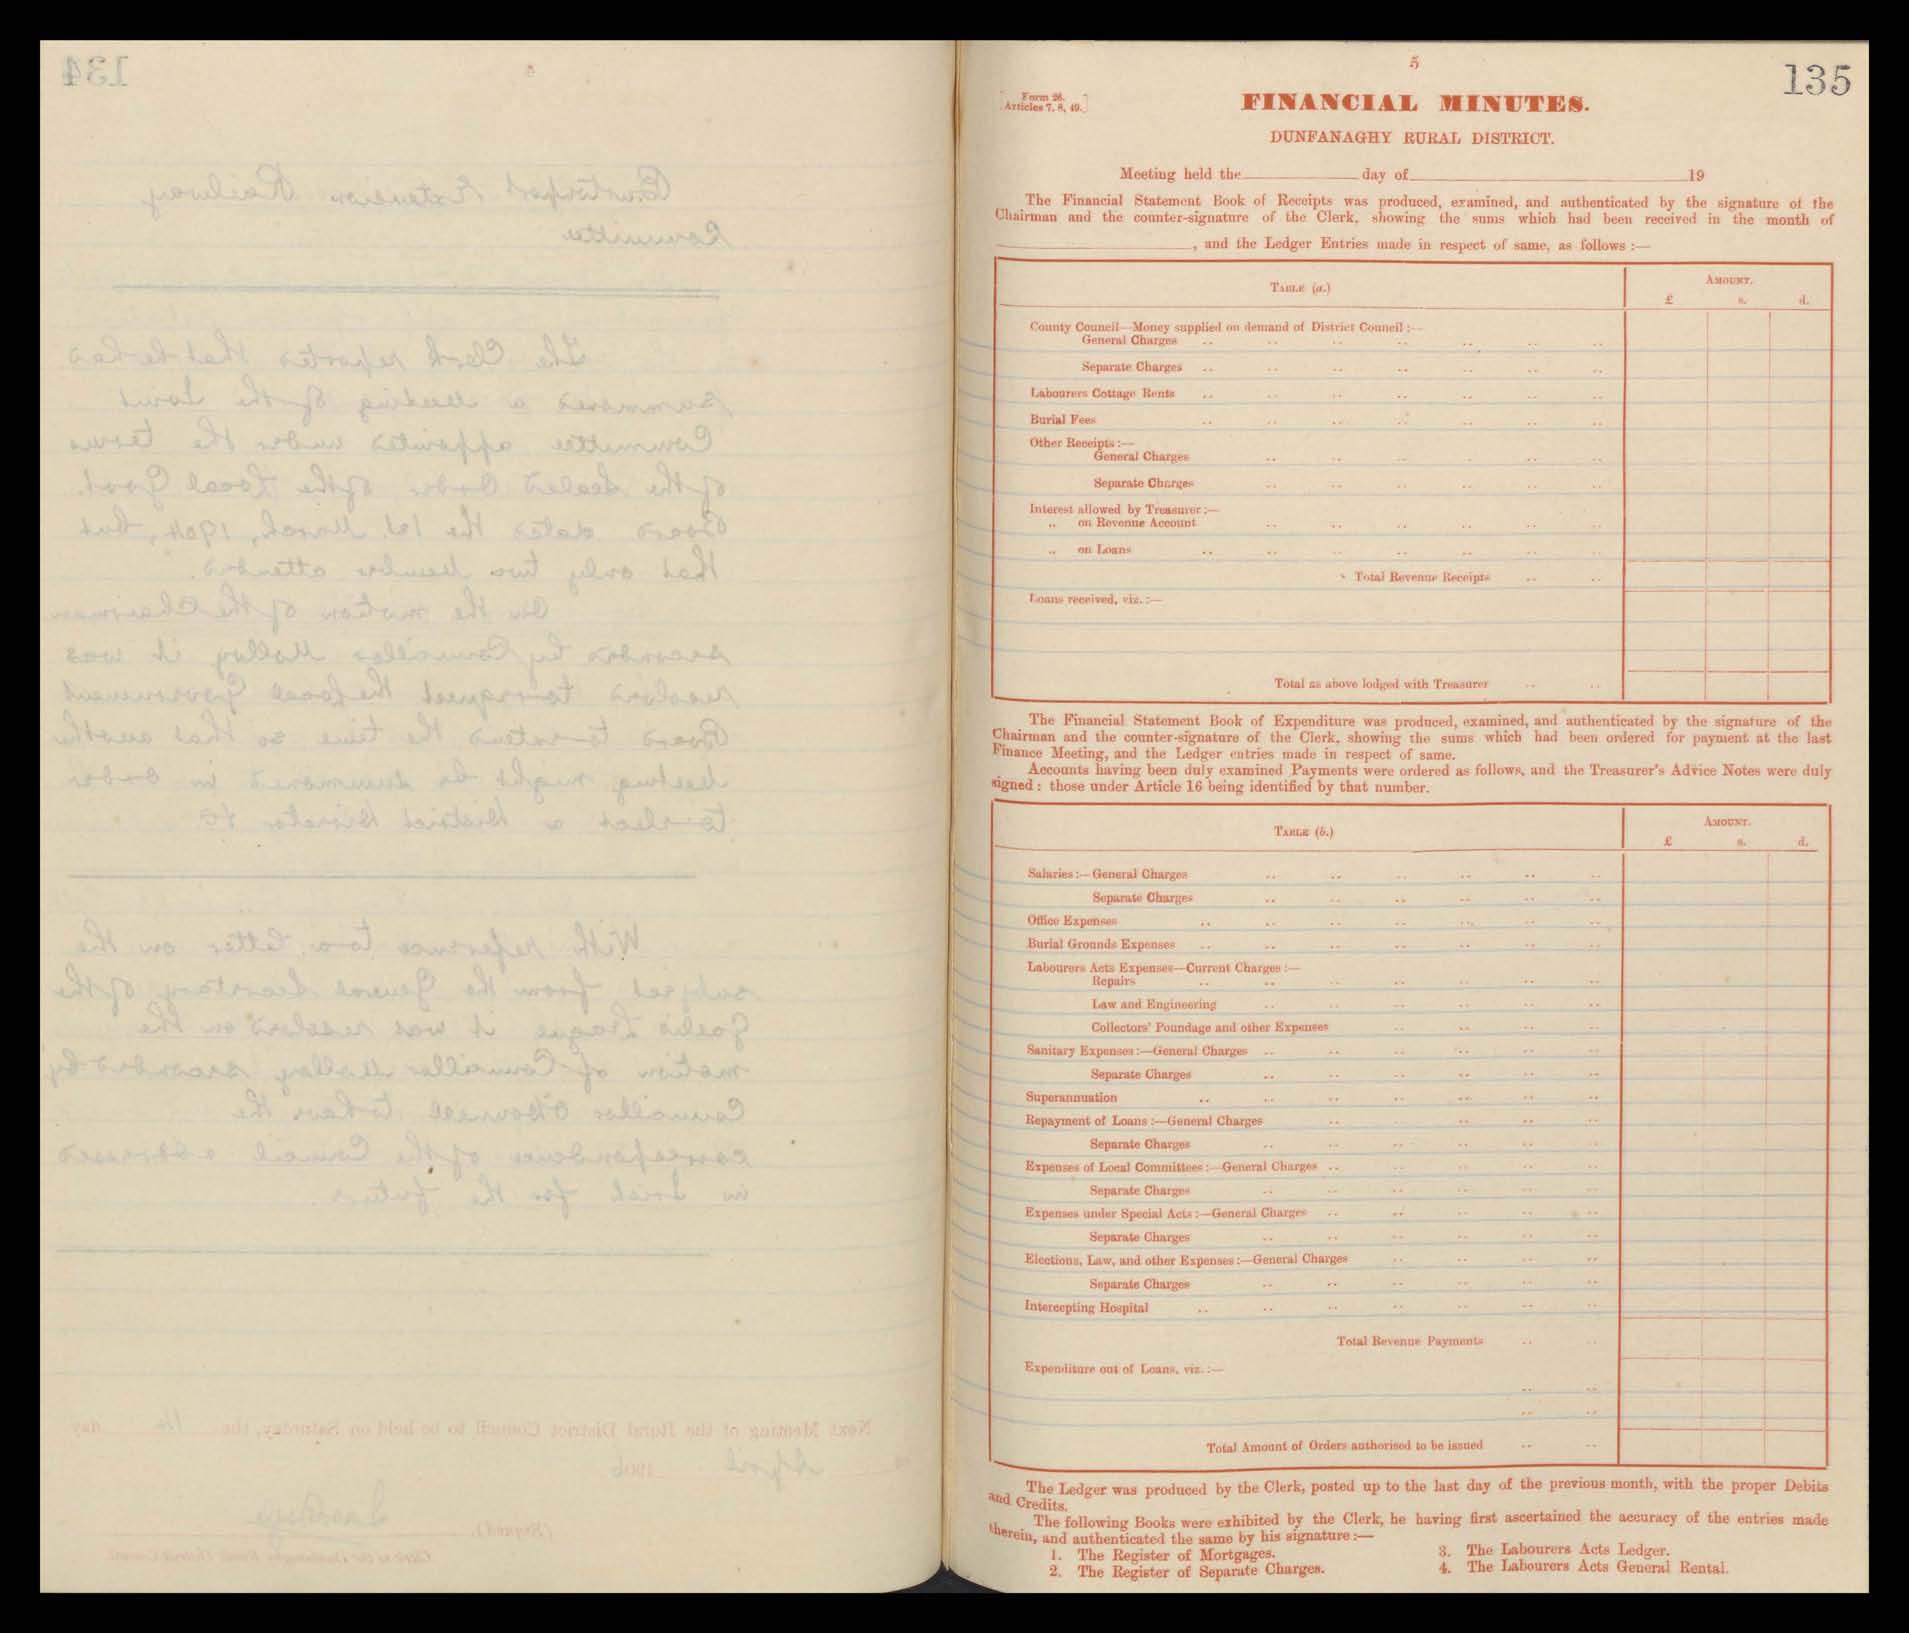 134
5
Burtonport Extension Railway
Committee
The Clerk reported that he has
summoned a Meeting of the Joint
Committee appointed under the terms
of the Sealed Order of the Local Govt.
Board dated the 1st. March, 1904, but
that only two Members attended.
On the motion of the Chairman
seconded by Councillor Molloy it was
resolved to request the Local Government
Board to the time so that another
Meeting might be summoned in order
to elect a District Director &c
With reference to a letter on the
subject from the General Secretary of the
Gaelic League it was resolved on the
motion of Councillor Molloy seconded by
Councillor O'Donnell to have the
correspondence of the Council addressed
in Irish for the future.
Next Meeting of the Rural District Council to be held on Saturday, the 14 day
of April 1906
(Signed),
Clerk to the Dunfanaghy Rural District Council.
5
135
Form 26.
Articles 7, 8, 49.
FINANCIAL MINUTES.
DUNFANAGHY RURAL DISTRICT.
Meeting held the day of 19
The Financial Statement Book of Receipts was produced, examined, and authenticated by the signature of the
Chairman and the counter-signature of the Clerk, showing the sums which had been received in the month of
, and the Ledger Entries made in respect of same, as follows :—
TABLE (a.) AMOUNT.
£ s. d.
County Council—Money supplied on demand of District Council :—
General Charges
Separate Charges
Labourers Cottage Rents
Burial Fees
Other Receipts :—
General Charges
Separate Charges
Interest allowed by Treasurer :—
„ on Revenue Account
„ on Loans
Total Revenue Receipts
Loans received, viz. :—
Total as above lodged with Treasurer
The Financial Statement Book of Expenditure was produced, examined, and authenticated by the signature of the
Chairman and the counter-signature of the Clerk, showing the sums which had been ordered for payment at the last
Finance Meeting, and the Ledger entries made in respect of same.
Accounts having been duly examined Payments were ordered as follows, and the Treasurer's Advice Notes were duly
signed : those under Article 16 being identified by that number.
TABLE (b.) AMOUNT.
£ s. d.
Salaries :—General Charges
Separate Charges
Office Expenses
Burial Grounds Expenses
Labourers Acts Expenses—Current Charges :—
Repairs
Law and Engineering
Collectors' Poundage and other Expenses
Sanitary Expenses :—General Charges
Separate Charges
Superannuation
Repayment of Loans :—General Charges
Separate Charges
Expenses of Local Committees :—General Charges
Separate Charges
Expenses under Special Acts :—General Charges
Separate Charges
Elections, Law, and other Expenses :—General Charges
Separate Charges
Intercepting Hospital
Total Revenue Payments
Expenditure out of Loans, viz. :—
Total Amount of Orders authorised to be issued
The Ledger was produced by the Clerk, posted up to the last day of the previous month, with the proper Debits
and Credits.
The following Books were exhibited by the Clerk, he having first ascertained the accuracy of the entries made
therein, and authenticated the same by his signature :—
1. The Register of Mortgages.
2. The Register of Separate Charges.
3. The Labourers Acts Ledger.
4. The Labourers Acts General Rental.